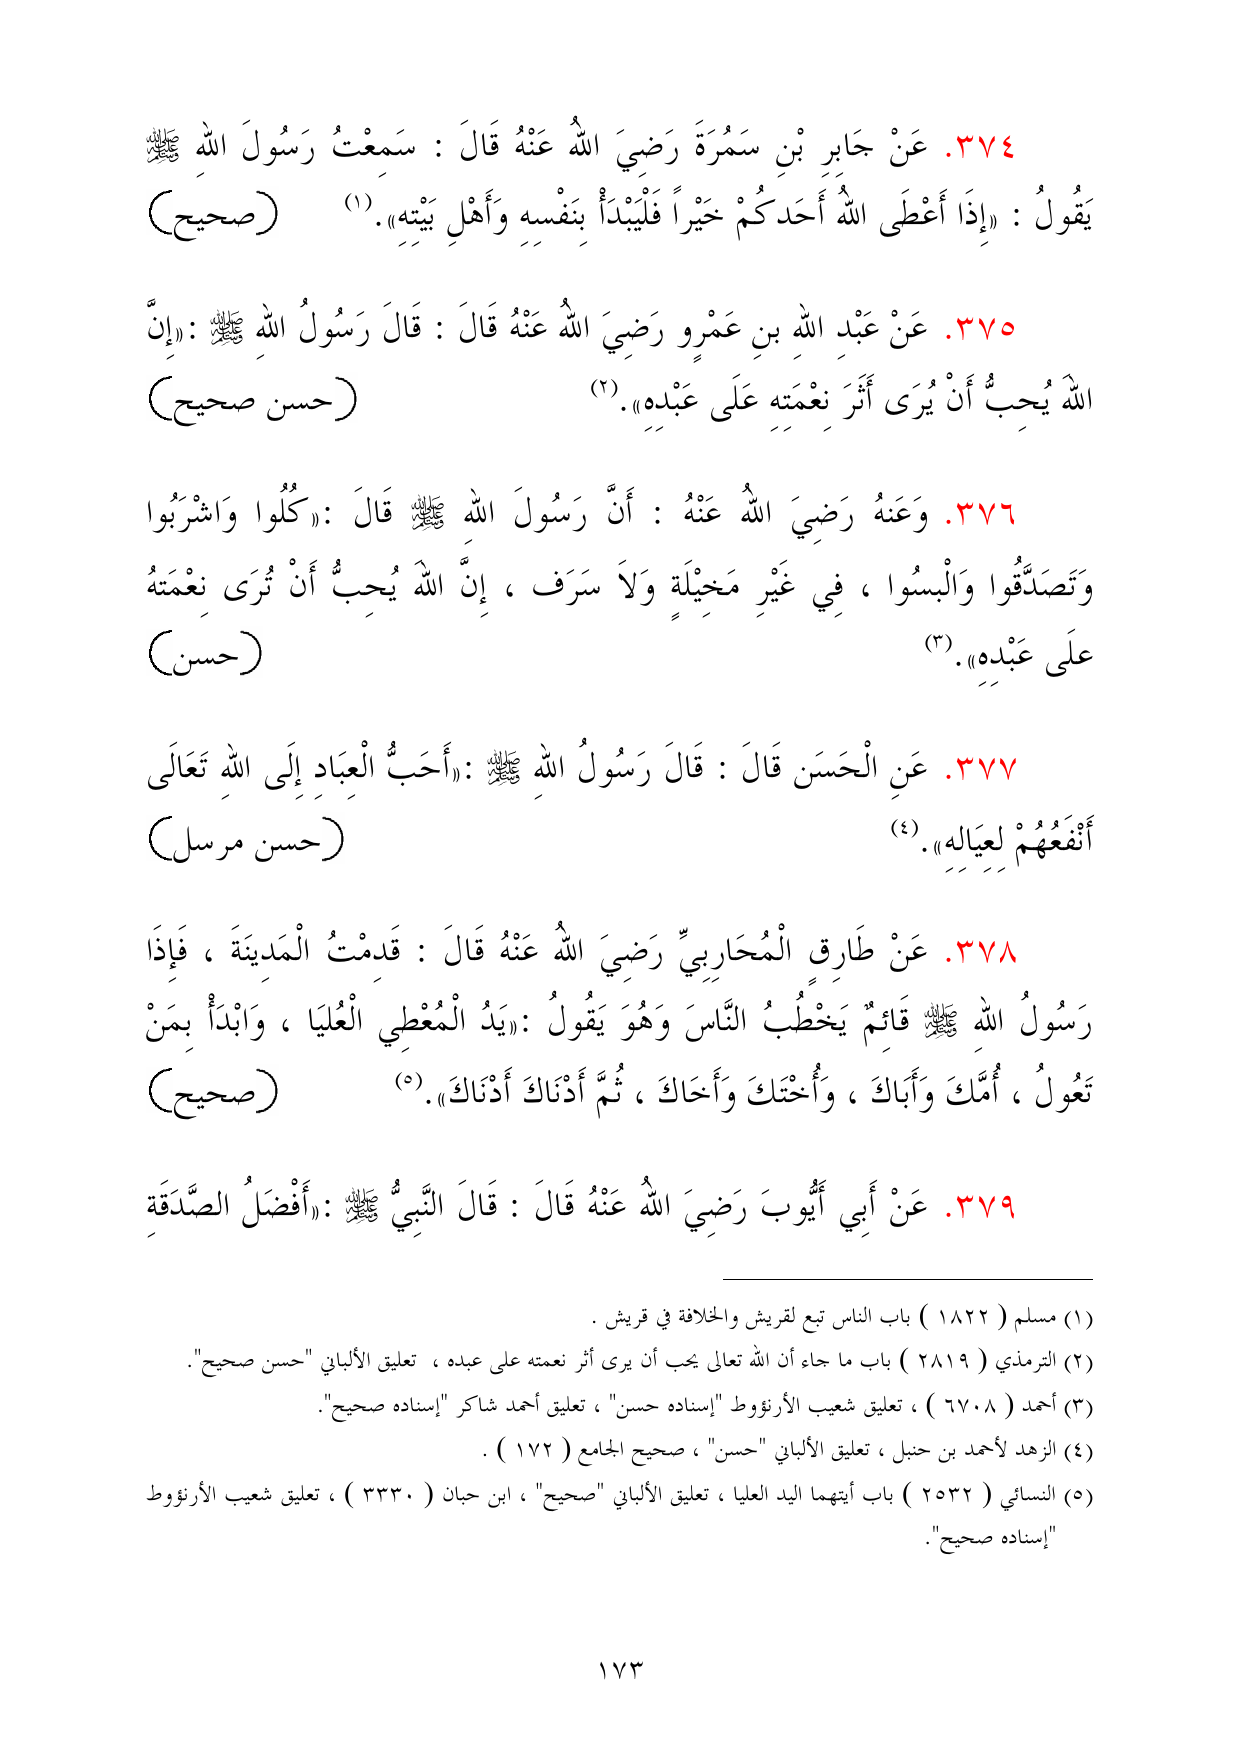 ٣٧٤. عَنْ جَابِرِ بْنِ سَمُرَةَ رَضِيَ اللهُ عَنْهُ قَالَ : سَمِعْتُ رَسُولَ اللهِ ﷺ
يَقُولُ : «إِذَا أَعْطَى اللهُ أَحَدكُمْ خَيْراً فَلْيَبْدَأْ بِنَفْسِهِ وَأَهْلِ بَيْتِهِ».(١) (صحيح)
٣٧٥. عَنْ عَبْدِ اللهِ بنِ عَمْرٍو رَضِيَ اللهُ عَنْهُ قَالَ : قَالَ رَسُولُ اللهِ ﷺ :«إِنَّ
اللهَ يُحِبُّ أَنْ يُرَى أَثَرَ نِعْمَتِهِ عَلَى عَبْدِهِ».(٢) (حسن صحيح)
٣٧٦. وَعَنهُ رَضِيَ اللهُ عَنْهُ : أَنَّ رَسُولَ اللهِ ﷺ قَالَ :«كُلُوا وَاشْرَبُوا
وَتَصَدَّقُوا وَالْبسُوا ، فِي غَيْرِ مَخِيْلَةٍ وَلاَ سَرَف ، إِنَّ اللهَ يُحِبُّ أَنْ تُرَى نِعْمَتهُ
علَى عَبْدِهِ».(٣) (حسن)
٣٧٧. عَنِ الْحَسَن قَالَ : قَالَ رَسُولُ اللهِ ﷺ :«أَحَبُّ الْعِبَادِ إِلَى اللهِ تَعَالَى
أَنْفَعُهُمْ لِعِيَالِهِ».(٤) (حسن مرسل)
٣٧٨. عَنْ طَارِقٍ الْمُحَارِبِيِّ رَضِيَ اللهُ عَنْهُ قَالَ : قَدِمْتُ الْمَدِينَةَ ، فَإِذَا
رَسُولُ اللهِ ﷺ قَائِمٌ يَخْطُبُ النَّاسَ وَهُوَ يَقُولُ :«يَدُ الْمُعْطِي الْعُلْيَا ، وَابْدَأْ بِمَنْ
تَعُولُ ، أُمَّكَ وَأَبَاكَ ، وَأُخْتَكَ وَأَخَاكَ ، ثُمَّ أَدْنَاكَ أَدْنَاكَ».(٥) (صحيح)
٣٧٩. عَنْ أَبِي أَيُّوبَ رَضِيَ اللهُ عَنْهُ قَالَ : قَالَ النَّبِيُّ ﷺ :«أَفْضَلُ الصَّدَقَةِ
(١) مسلم ( ١٨٢٢ ) باب الناس تبع لقريش والخلافة في قريش .
(٢) الترمذي ( ٢٨١٩ ) باب ما جاء أن الله تعالى يحب أن يرى أثر نعمته على عبده ، تعليق الألباني "حسن صحيح".
(٣) أحمد ( ٦٧٠٨ ) ، تعليق شعيب الأرنؤوط "إسناده حسن" ، تعليق أحمد شاكر "إسناده صحيح".
(٤) الزهد لأحمد بن حنبل ، تعليق الألباني "حسن" ، صحيح الجامع ( ١٧٢ ) .
(٥) النسائي ( ٢٥٣٢ ) باب أيتهما اليد العليا ، تعليق الألباني "صحيح" ، ابن حبان ( ٣٣٣٠ ) ، تعليق شعيب الأرنؤوط
"إسناده صحيح".
١٧٣